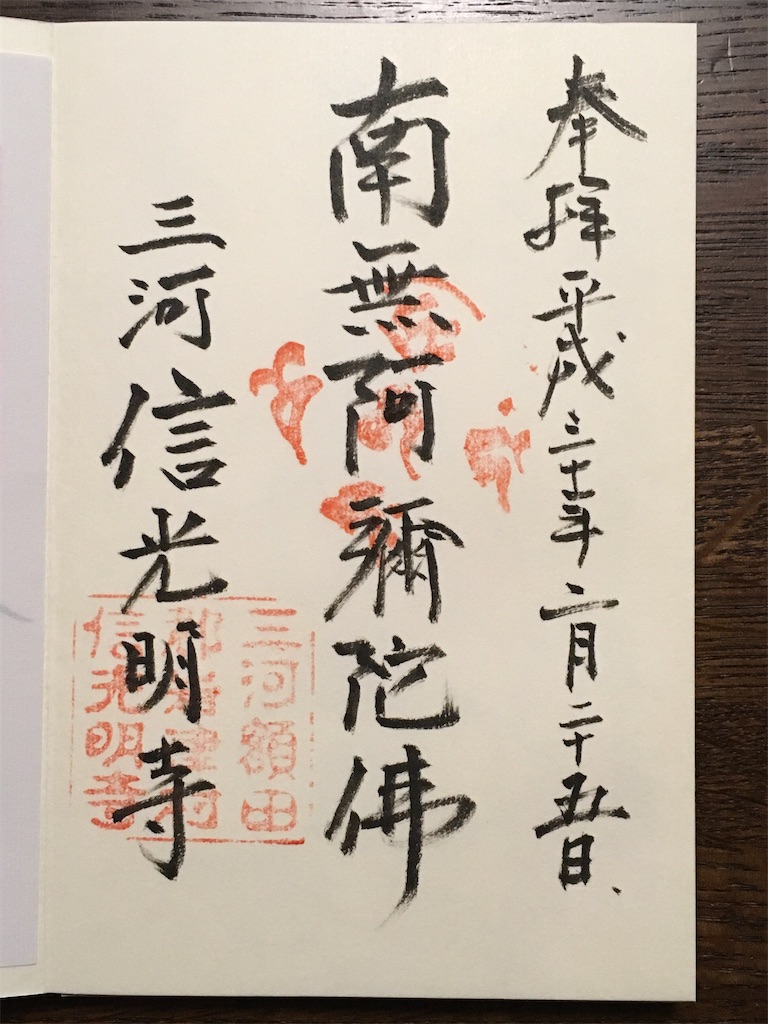 奉拝 平成三十一年二月二十五日
南無阿彌陀佛
三河 信光明寺
三河額田
郡岩津村
信光明寺